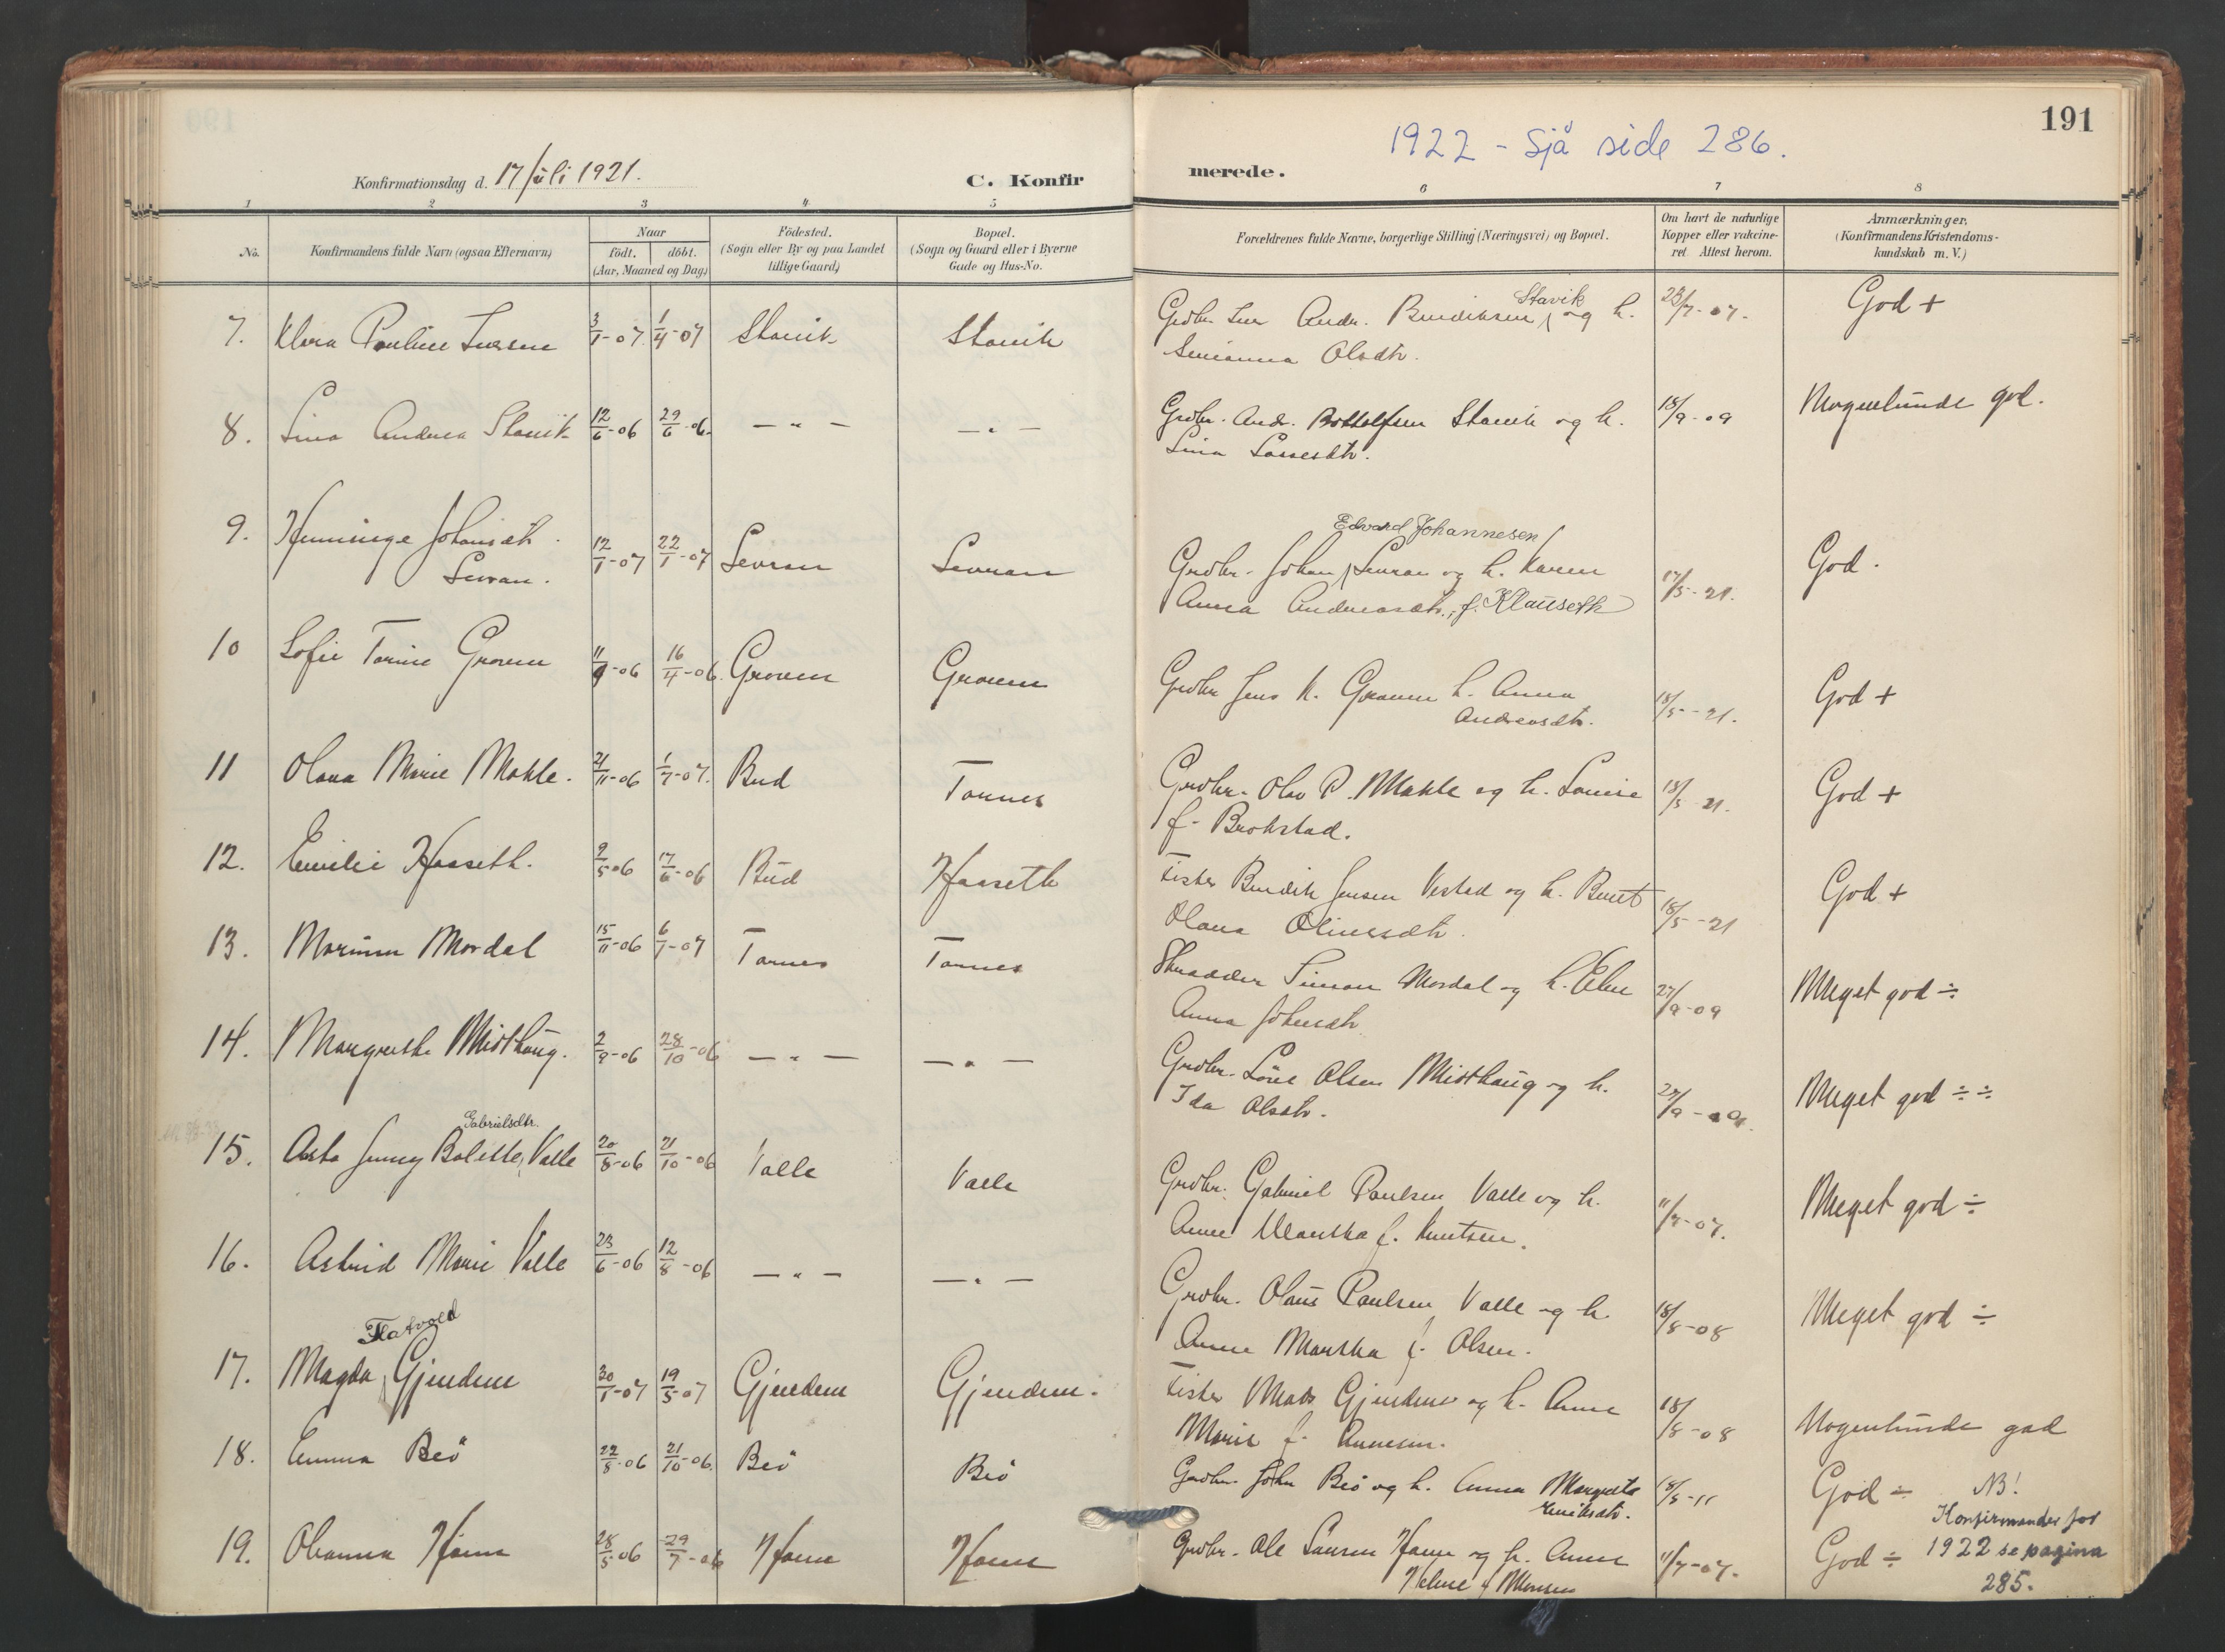 191
1922 - Sjå side 286.
Konfirmationsdag d. 17 juli 1921.
C. Konfirmerede.
1 2 3 4 5 6 7 8
No.
Konfirmandens fulde Navn (ogsaa Efternavn)
Naar
født. døbt.
(Aar, Maaned og Dag)
Fødested.
(Sogn eller By og paa Landet
tillige Gaard)
Bopæl.
(Sogn og Gaard eller i Byerne
Gade og Hus-No.
Forældrenes fulde Navne, borgerlige Stilling (Næringsvei) og Bopæl.
Om havt de naturlige
Kopper eller vakcine-
ret Attest herom.
Anmærkninger,
(Konfirmandens Kristendoms-
kundskab m. V.)
7. Klara Pauline Iversen 3/1-07 1/4-07 Stavik Stavik Grdbr. Iver Andr. Bendiksen Stavik og h. 23/7-07. God +
Olsdtr.
8. Lina Andrea Stavik 12/6-06 29/6-06. — " — — " — Grdbr. Andr. Bottolfsen Stavik og h. 18/9-09 Nogenlunde god.
Lina Lassesdtr.
9. Henninge Johansdtr. 12/1-07 22/1-07 Sevran Sevran Grdbr. Johan Edvard Johannesen Sevran og h. Karen 17/5-21. God.
Sevran. Anna Andreasdtr., f. Klauseth
10 Sofie Tomine Groven 11/9-06 16/4-06. Groven Groven Grdbr Jens K. Groven h. Anna 18/5-21. God +
Andreasdtr.
11 Olava Marie Mohle. 21/11-06 1/7-07. Bud Tornes Grdbr. Olav P. Mohle og h. Louise 18/5-21. God +
f. Brokstad.
12. Emilie Hasseth. 9/5-06 17/6-06 Bud Hasseth Fisker Bendik Jensen Vestad og h. Beret 18/5-21 God +
Olava Olinesdtr.
13. Marinus Mordal 15/11-06 6/1-07 Tornes Tornes Skrædder Simon Mordal og h. Elen 27/9-09 Meget god ÷
Anna Johnsdtr.
14. Margrethe Misthaug. 2/9-06 28/10-06 — " — — " — Grdbr. Olsen Misthaug og h. 27/9-09. Meget god ÷ ÷
Ida Olsdtr.
15. Asta Jenny Bolette Gabrielsdtr. Valle 20/8-06 21/10-06 Valle Valle Grdbr. Gabriel Paulsen Valle og h. 11/7-07. Meget god ÷
Anne Martha f. Knutsen.
16. Astrid Marie Valle 23/6-06 12/8-06 — " — — " — Grdbr. Olaus Paulsen Valle og h. 18/8-08 Meget god ÷
Anne Martha f. Olsen.
17. Magda Flatvold Gjendem 30/1-07 19/5-07 Gjendem Gjendem. Fisker Mads Gjendem og h. Anne 18/8-08 Nogenlunde god
Marie f.
18. Emma Beö 22/8-06 21/10-06. Beö Beö Grdbr. John Beö og h. Anna Margrete 18/5-11 God ÷
Eriksdtr.
19. Olianna Horne 28/5-06 29/7-06 Grdbr. Ole Larsen og h. Anne 11/7-07. God ÷
NB!
Konfirmander for
1922 se pagina
285.